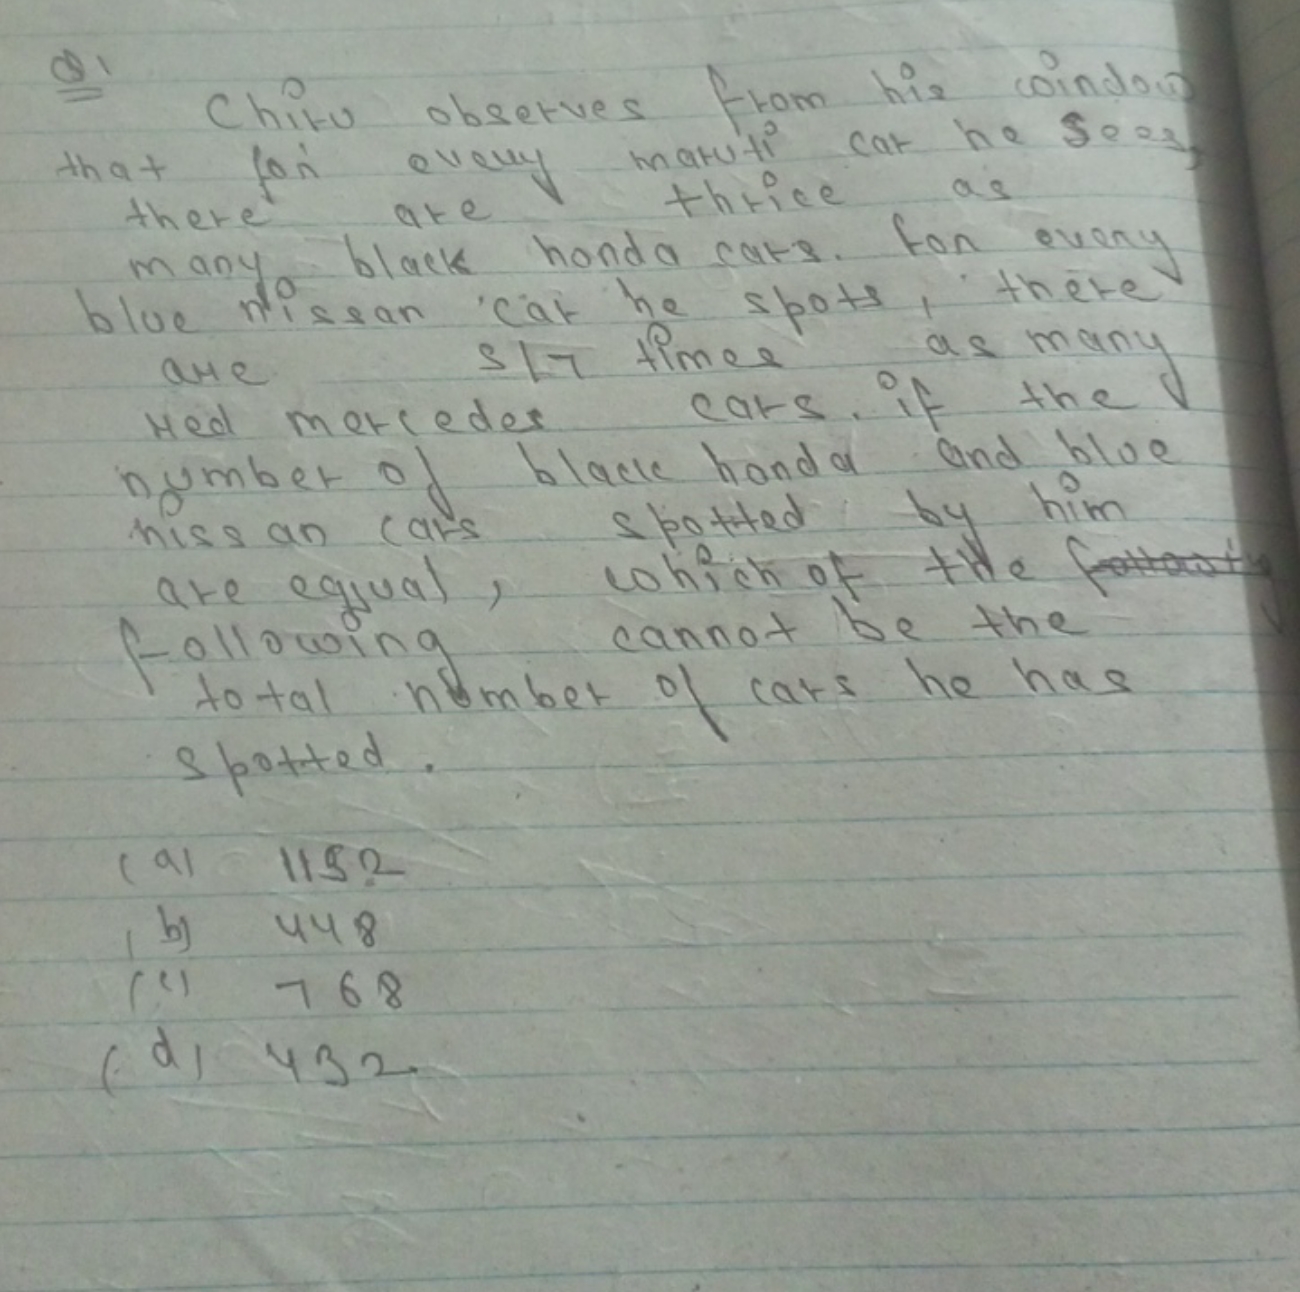 Q1
Chiru observes from his window
that for every maruti car he sees,
there are thrice as
many black honda cars. for every
blue nissan car he spots, there
are six times as many
red mercedes cars. if the
number of black honda and blue
nissan cars spotted by him
are equal, which of the
following cannot be the
total number of cars he has
spotted.
(a) 1152
(b) 448
(c) 768
(d) 432